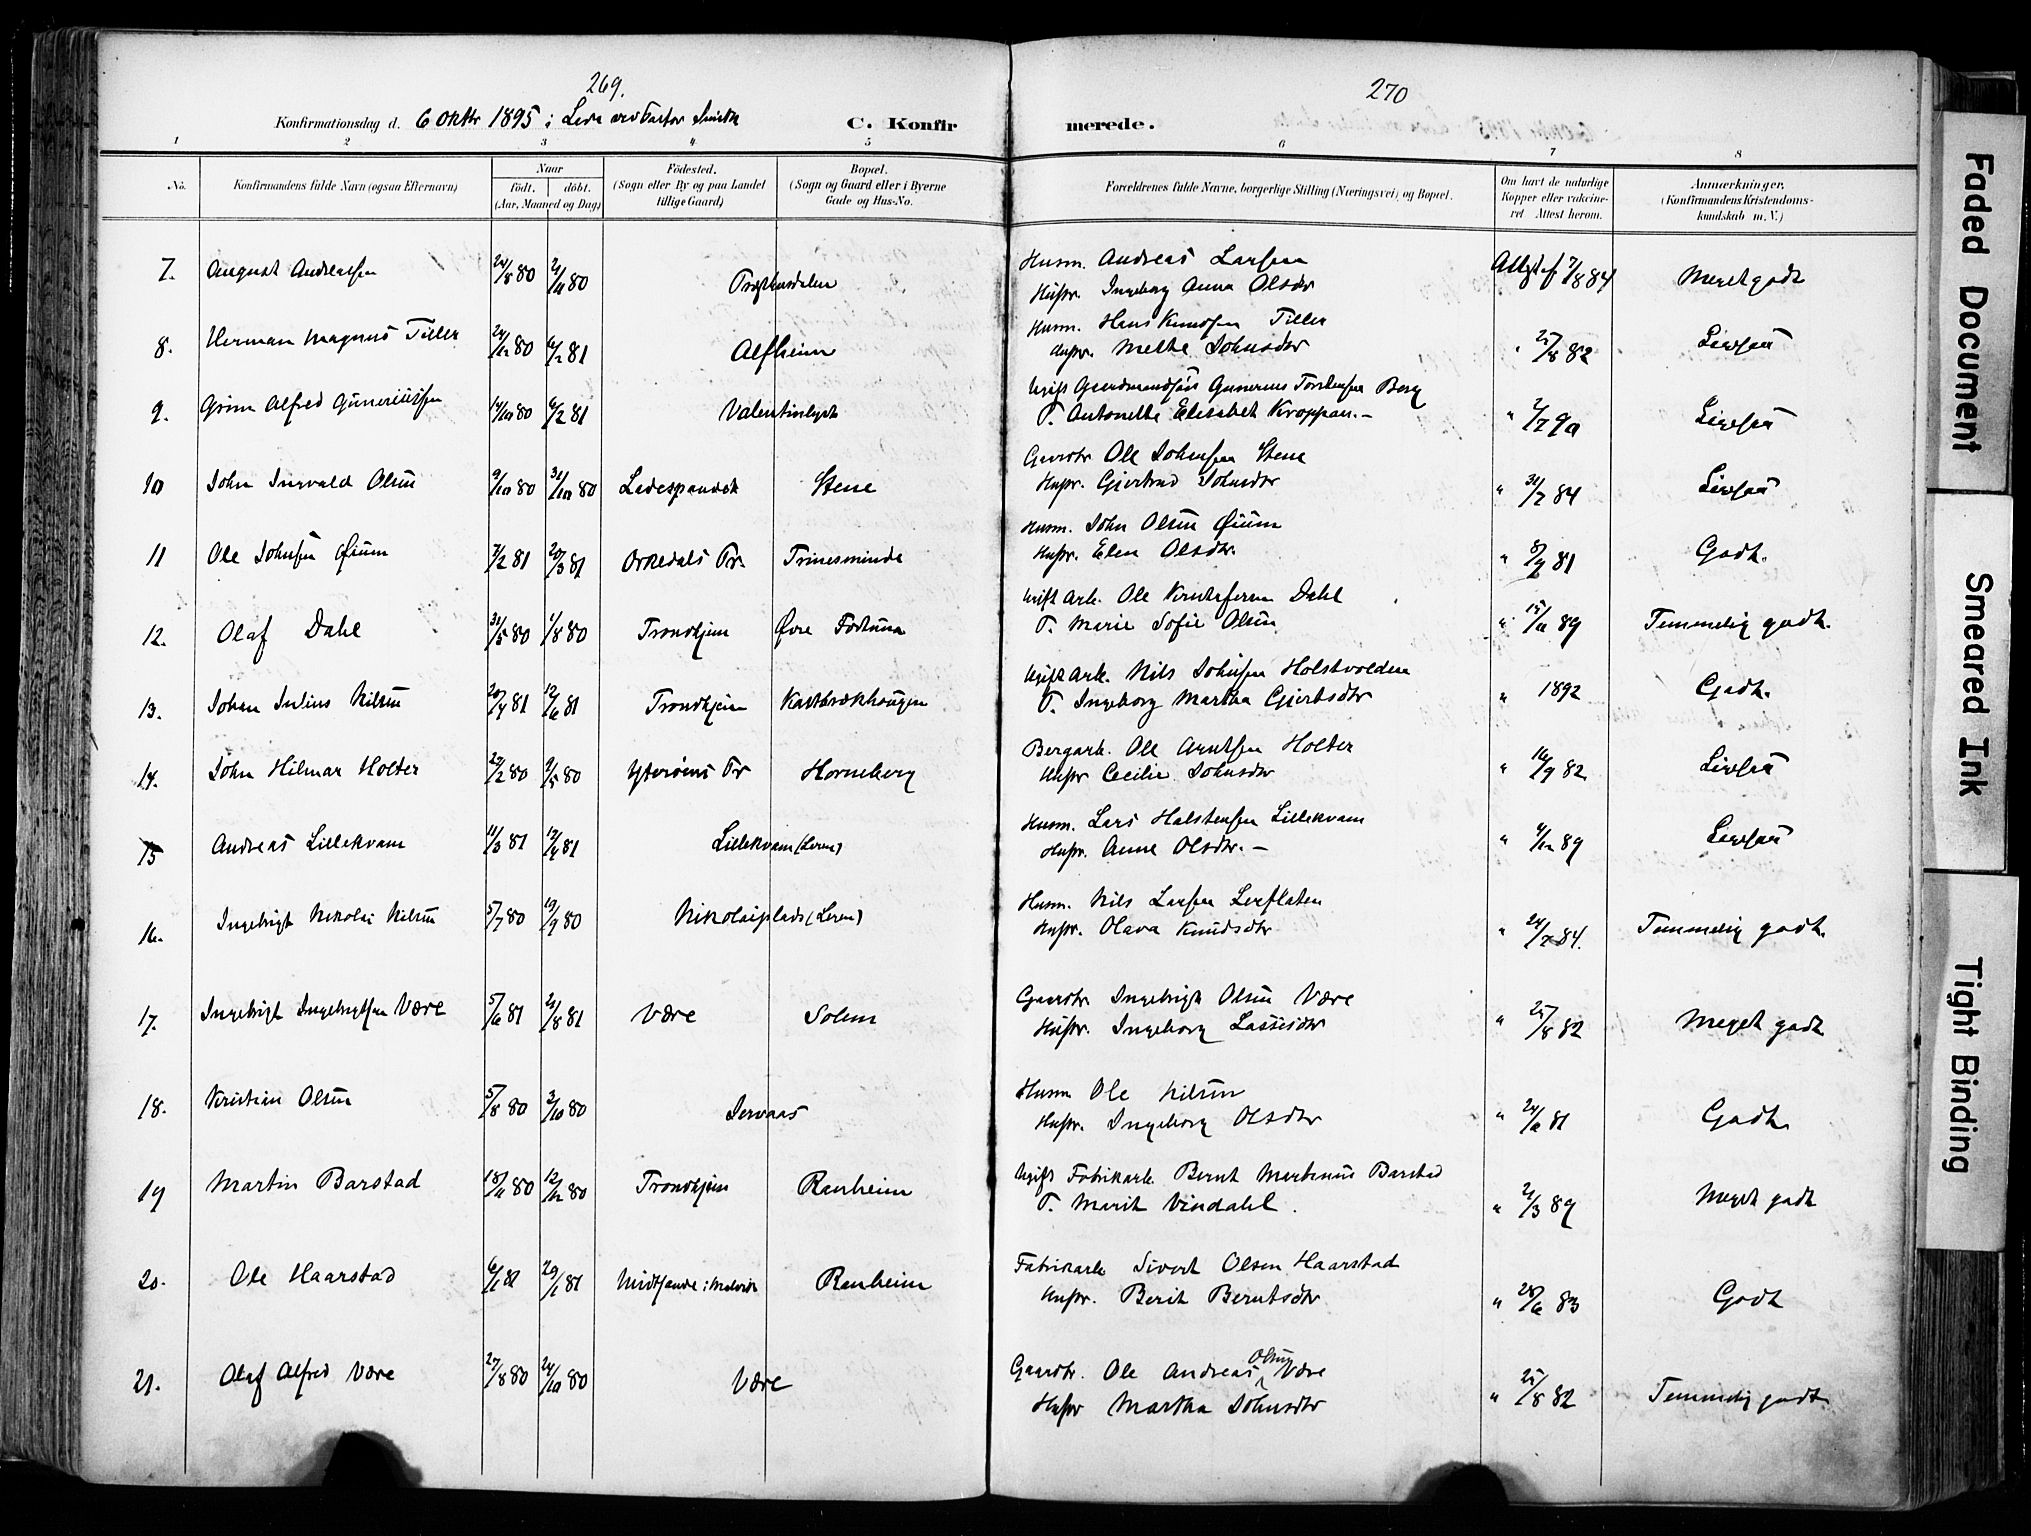 269.
270
Konfirmationsdag d. 6 Oktbr 1895 i Lade ved Pastor
C. Konfirmerede.
1 2 3 4 5 6 7 8
No.
Konfirmandens fulde Navn (ogsaa Efternavn)
Naar
födt. döbt.
(Aar, Maaned og Dag)
Födested.
(Sogn eller By og paa Landet
tillige Gaard)
Bopæl.
(Sogn og Gaard eller i Byerne
Gade og Hus-No.
Forældrenes fulde Navne, borgerlige Stilling (Næringsvei) og Bopæl.
Om havt de naturlige
Kopper eller vakcine-
ret Attest herom.
Anmærkninger.
(Konfirmandens Kristendoms-
kundskab m. V.)
7. August Andreassen 24/8 80 21/11 80
Husm. Andreas Larsen
Hustr. Ingeborg Anna Olsdtr
Attest af 7/8 84 Meget godt
8. Herman Magnus Tiller 24/12 80 6/2 81 Alfheim
Husm. Hans Knudsen Tiller
Hustr. Mette Johnsdtr
" 25/8 82 Ligesaa
9. Grim Alfred Guneriussen 14/10 80 6/2 81 Valentinlyst
Ugift Gaardmandssøn Gunerius Torstensen Berg
P. Antonette Elisabet Kroppan.-
" 2/7 90 Ligesaa
10 John Ingvald Olsen 9/10 80 31/10 80 Ladespandet Stene
Gaardbr Ole Johnsen Stene
Hustr. Gjertrud Johnsdtr
" 31/7 84 Ligesaa
11 Ole Johnsen Øium 7/2 81 20/3 81 Orkedals Pr. Trinesminde
Husm. John Olsen Øium
Hustr. Elen Olsdtr.
" 8/9 81 Godt.
12. Olaf Dahl 31/5 80 1/8 80 Trondhjem Øvre Fortuna
Ugift Arb. Ole Kristofersen Dahl
P. Marie Sofie Olsen
" 15/11 89 Temmelig godt.
13. Johan Julius Nilsen 20/4 81 12/6 81 Trondhjem Kastbrækhaugen
Ugift Arb. Nils Johnsen Holstvolden
P. Ingeborg Martha Gjertsdtr
" 1892 Godt.
14. John Hilmar Holter 29/2 80 9/5 80 Ytterøens Pr Horneberg
Bergarb. Ole Arntsen Holter
Hustr Cecilie Johnsdtr
" 16/9 82 Ligesaa
15 Andreas Lillekvam 11/3 81 17/4 81 Lillekvam (Leren)
Husm. Lars Halstensen Lillekvam
Hustr. Anne Olsdtr. -
" 4/12 89 Ligesaa
16. Ingebrigt Nikolai Nilsen 5/7 80 19/9 80 Nikolaiplads (Leren)
Husm. Nils Larsen Lerflaten
Hustr. Olava Knudsdtr
" 24/7 84. Temmelig godt.
17. Ingebrigt Ingebrigtsen Være 5/6 81 21/8 81 Være Solem
Gaardbr. Ingebrigt Olsen Være
Hustr. Ingeborg Lassesdtr
" 25/8 82 Meget godt
18. Kristian Olsen 5/8 80 3/10 80 Jervaas
Husm Ole Nilsen
Hustr. Ingeborg Olsdtr
" 24/6 81 Godt
19 Martin Barstad 18/11 80 12/12 80 Trondhjem Ranheim
Ugift Fabrikarb Bernt Martinus Barstad
P. Marit Vindahl.
" 21/3 89 Meget godt
20. Ole Haarstad 6/1 81 29/1 81 Midtsande i Malvik Ranheim
Fabrikarb Sivert Olsen Haarstad
Hustr. Berit Berntsdtr
" 28/6 83 Godt
21. Olaf Alfred Være 27/8 80 24/10 80 Være
Gaardbr. Ole Andreas Olsen Være
Hustr Martha Johnsdtr
" 25/8 82 Temmelig godt
Faded Document
Smeared Ink
Tight Binding